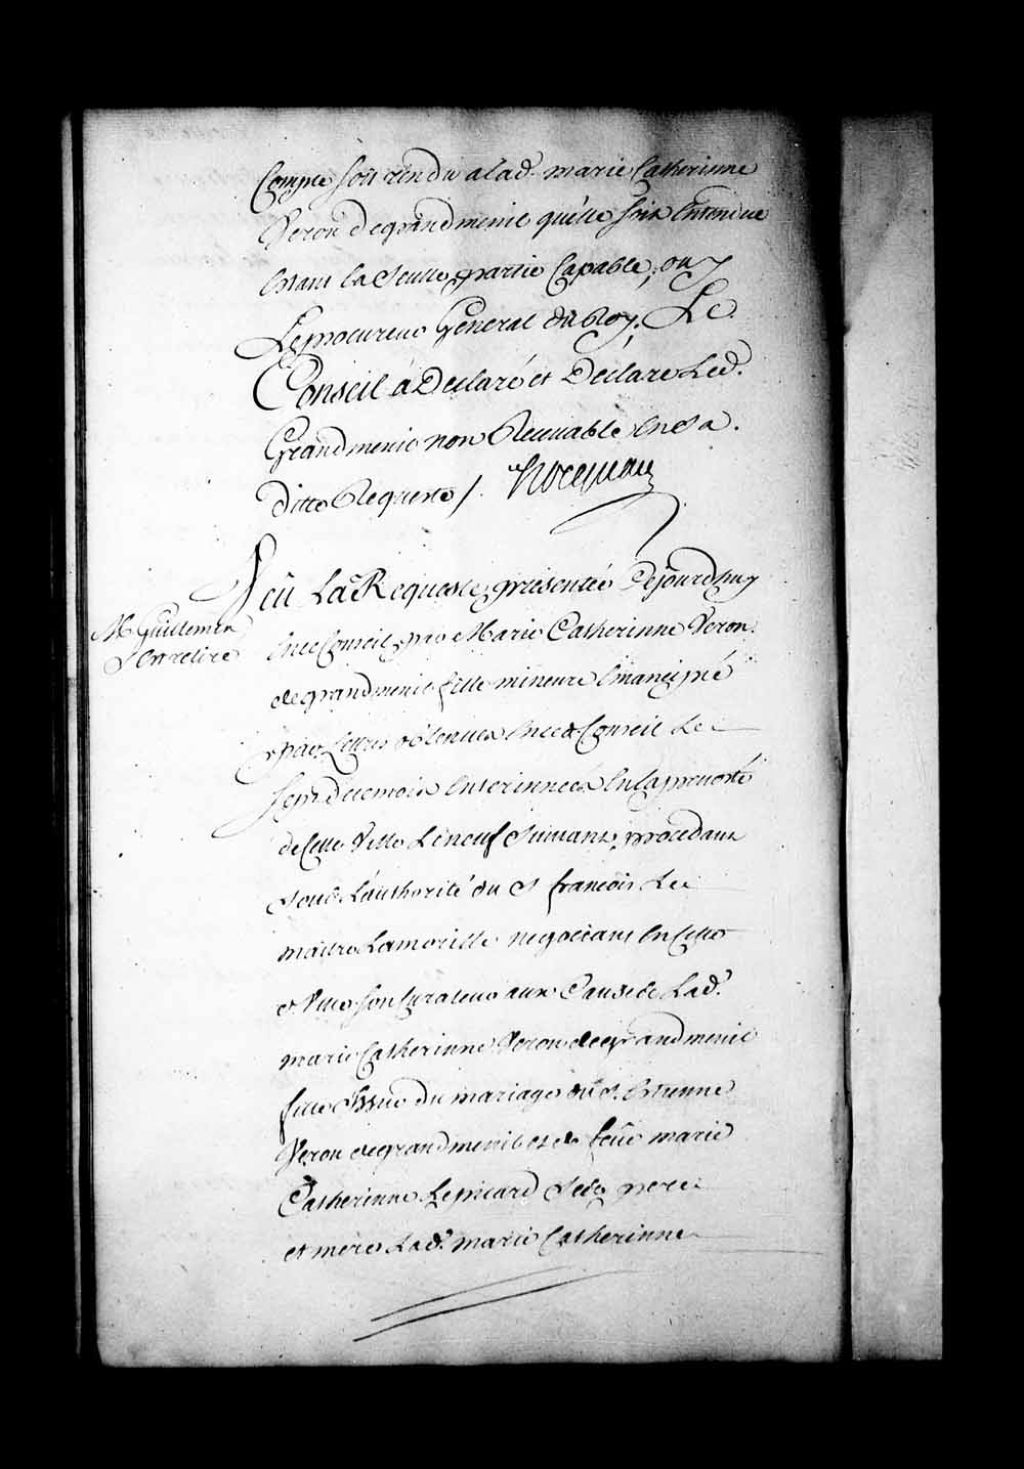 Compte soit rendu a lad. marie Catherinne
Veron degrandmenil qu'elle soit Entendue
Etant la seulle partie Capable, ouy
Leprocureur General du Roy. Le
Conseil a Declaré et Declare Led.
Grandmenil non Recevable En sa
ditte Requeste /. Hocquart
Veû La Requeste presentée dejourdhuy
M. Guillemin
s'Est retiré
En ce Conseil par Marie Catherinne Veron
degrandmenil fille mineure Emancipé
par Lettres obtenues En ce Conseil Le
sept. de ce mois Enterinnées En la prevosté
de Cette Ville Le neuf suivant, procedant
sous L'authorité du S. francois Le
maitre Lamorille negociant En Cette
Ville son Curateur aux Causes Lad.
marie Catherinne Veron degrandmenil
fille Issüe du mariage du S. Estienne
Veron degrandmenil et de feüe marie
Catherinne Lepicard ses pere
et mere Lad. marie Catherinne